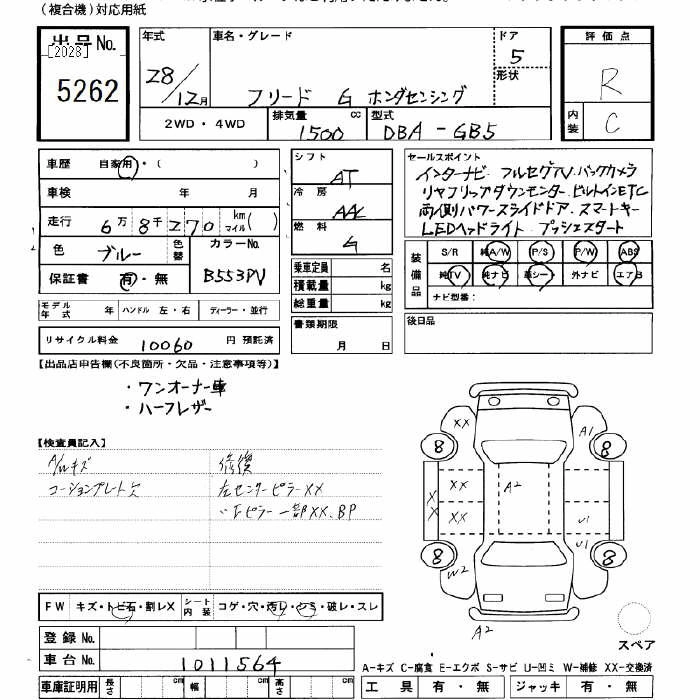 (複合機)対応用紙
出品No.
[2028]
5262
年式
28/12月
車名・グレード
フリード G ホンダセンシング
ドア
5
形状
評価点
R
内装
C
2WD・4WD
排気量
1500
cc
型式
DBA-GB5
車歴 自家用・( )
車検 年 月
走行 6万8千270 km マイル( )
色 ブルー 色替
カラーNo.
B553PV
保証書 有・無
モデル年式 年 ハンドル 左・右 ディーラー・並行
リサイクル料金 10060 円 預託済
シフト
AT
冷房
AAC
燃料
G
乗車定員 名
積載量 kg
総重量 kg
書類期限
月 日
セールスポイント
インターナビ フルセグTV.バックカメラ
リヤフリップダウンモニター.ビルトインETC
両側パワースライドドア.スマートキー
LEDヘッドライト.プッシュスタート
装備品
S/R 純A/W P/S P/W ABS
純TV 純ナビ 革シート 外ナビ エアB
ナビ型番:
後日品
【出品店申告欄(不良箇所・欠品・注意事項等)】
・ワンオーナー車
・ハーフレザー
【検査員記入】
A/Wキズ
コーションプレート欠
修復
左センターピラーXX
〃Fピラー一部XX.BP
FW キズ・トビ石・割レX シート内装 コゲ・穴・汚レ・シミ・破レ・スレ
登録No.
車台No. 1011564
車庫証明用 長さ cm 幅 cm 高さ cm
XX
A1
8
8
XX
XX
XX
XX
A2
U1
U1
8
8
W2
A2
スペア
A-キズ C-腐食 E-エクボ S-サビ U-凹ミ W-補修 XX-交換済
工具 有・無 ジャッキ 有・無